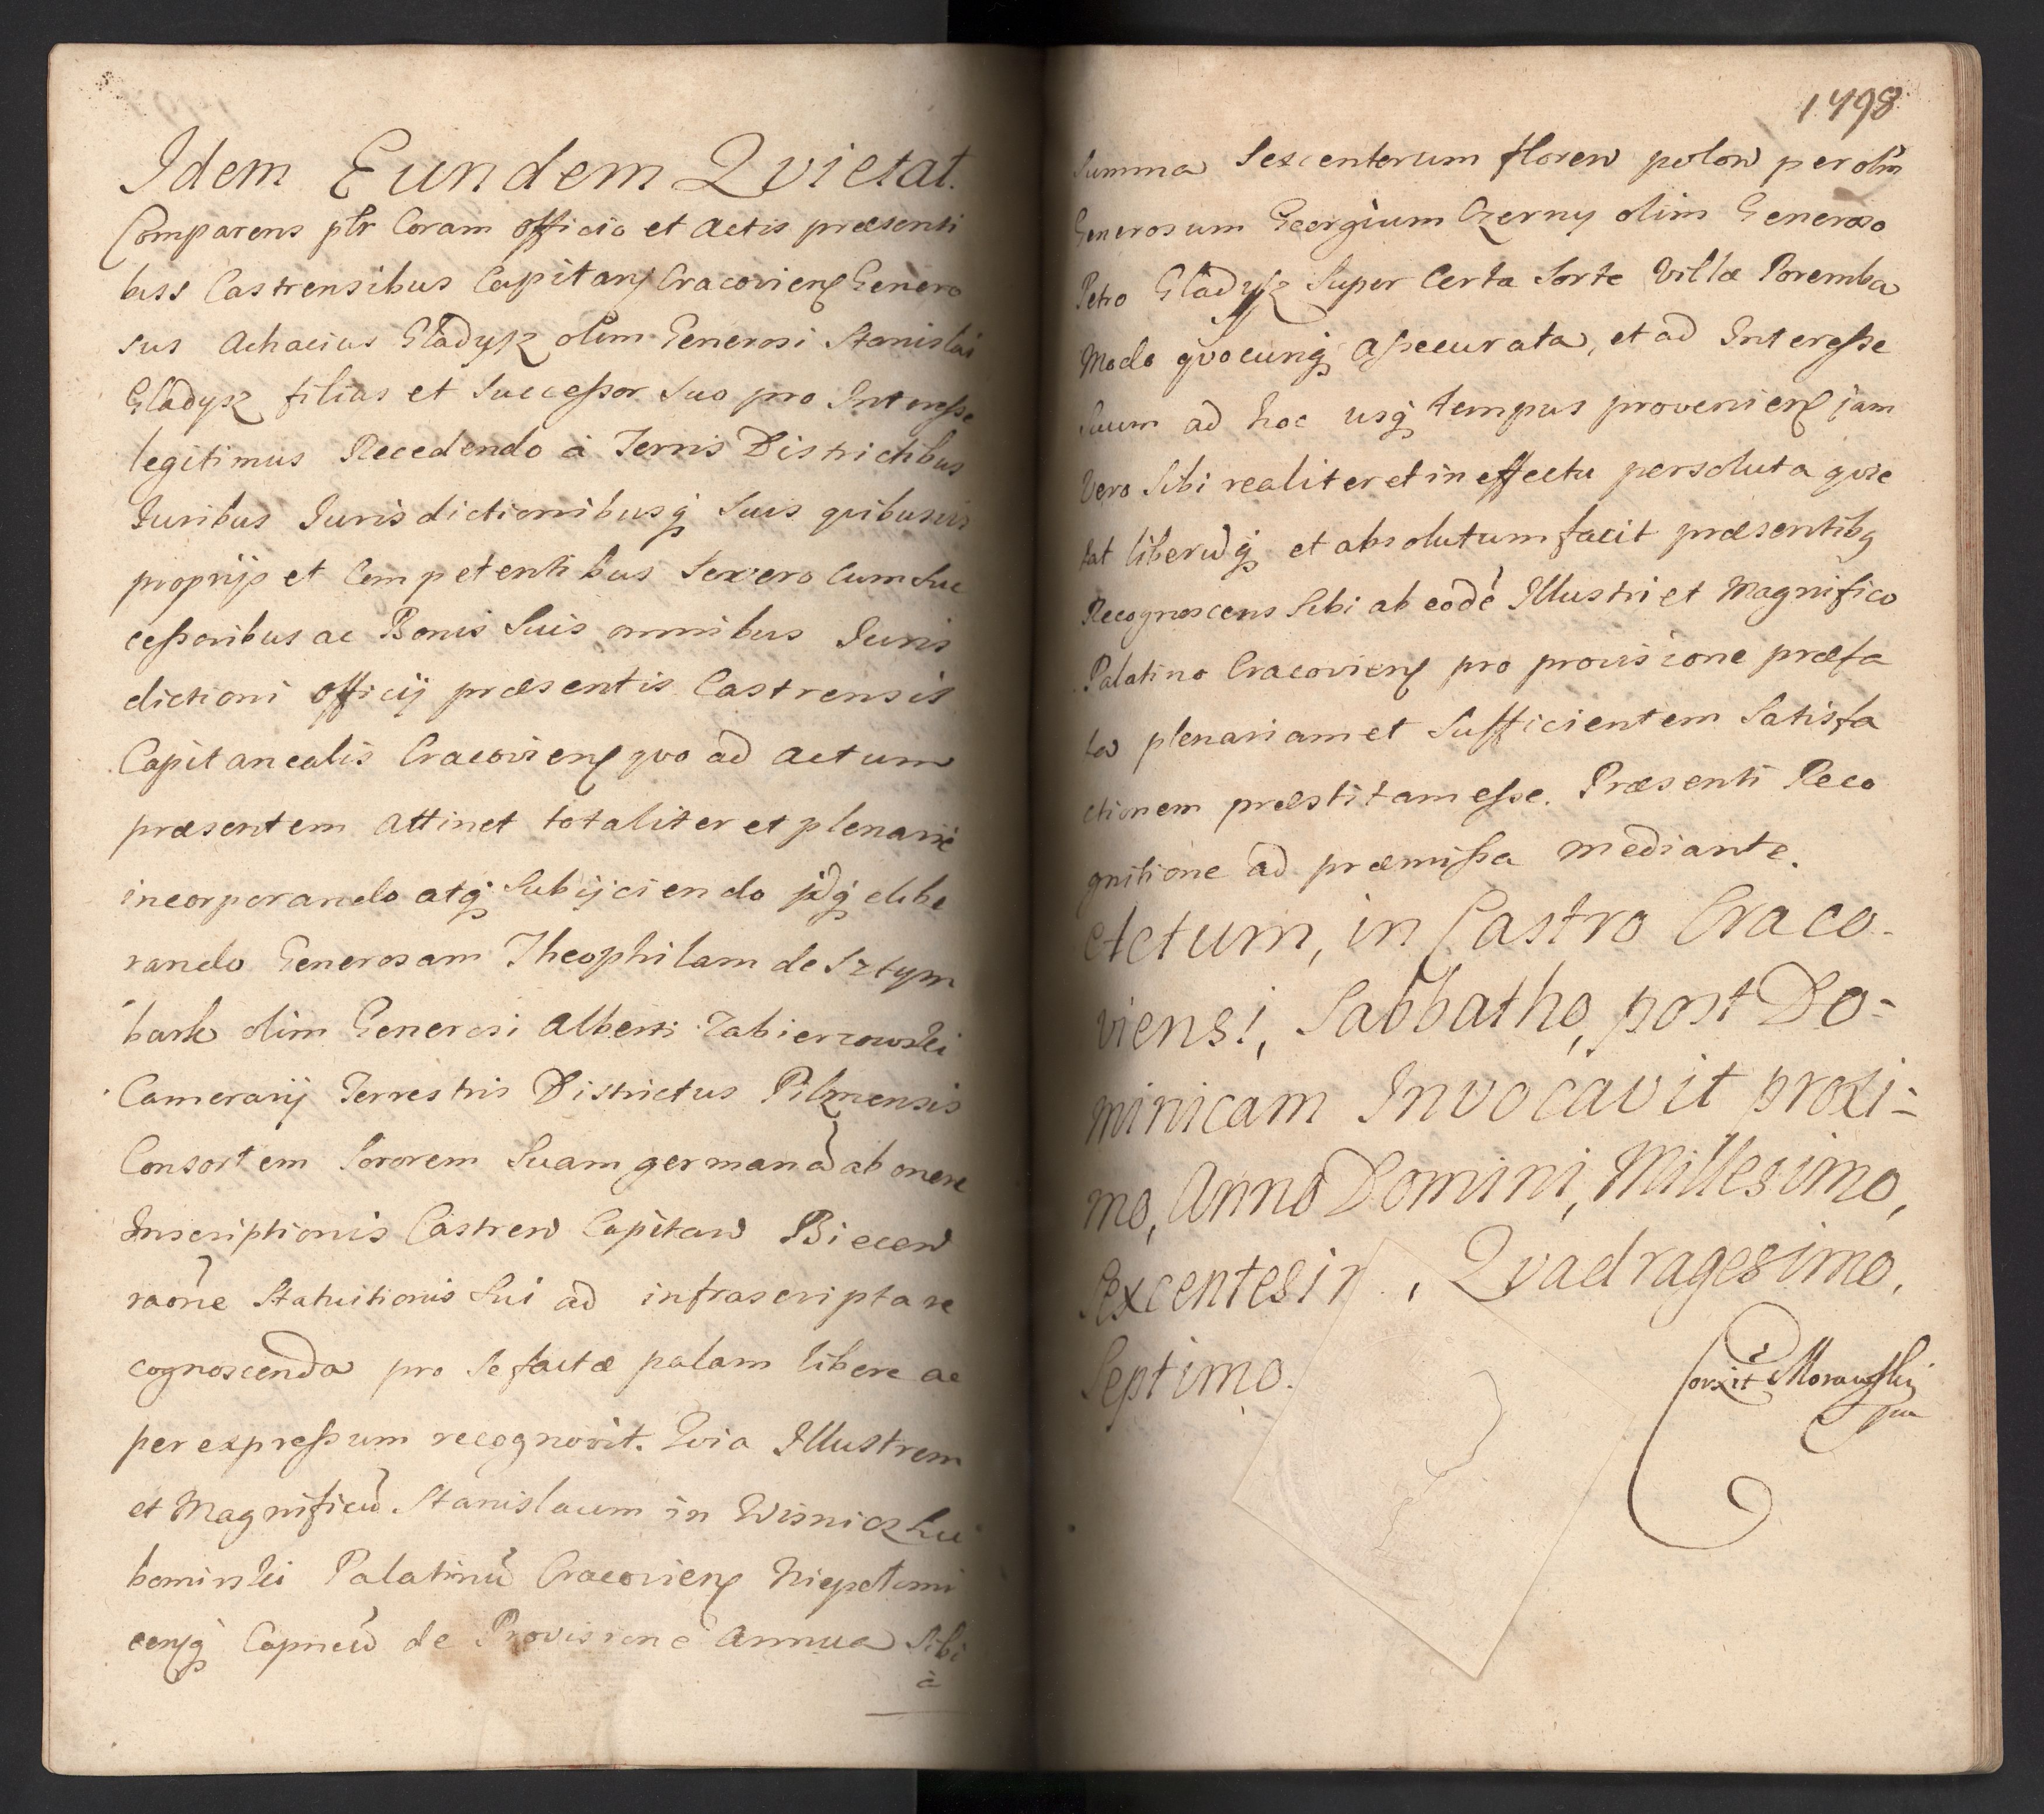 Idem Eundem Qvietat.
Comparens plr Coram officio et Actis præsenti
bus Castrensibus Capitanj Cracovien Genero
sus Achacius Gładysz olim Generosi Stanislai
Gładysz filius et Successor Suo pro Interesse
legitimus Recedendo à Terris Districtibus
Iuribus Iurisdictionibusq Suis quibusvis
proprijs et Competentibus Severo cum Suc
cessoribus ac Bonis Suis omnibus Juris
dictioni officij præsentis Castrensis
Capitanealis Cracovien quo ad actum
præsentem attinet totaliter et plenarie
incorporando atq Subijciendo delibe
rando Generosam Theophilam de Sztym
bark olim Generosi Alberti Zabierzowski
Camerarij Terrestris Districtus Pilznensis
Consortem Sororem Suam germanã ab onere
Inscriptionis Castren Capitan Biecen
raõne Statuitionis Sui ad infrascripta re
cognoscenda pro Se factæ palam libere ac
per expressum recognovit. Qvia Illustrem
et Magnificũ Stanislaum in Wisnicz Lu
bomirski Palatinũ Cracovien Niepolomi
cenq Capneũ de Provisione Annua Sibi
à
1498
Summa Sexcentorum floren polon per olim
Generosum Georgium Czerny olim Generoso
Petro Gładysz Super Certa Sorte Villæ Poremba
Modo qvocunq assecurata, et ad Interesse
Suum ad hoc usq tempus provenien jam
Vero Sibi realiter et in effectu persoluta qvie
tat liberũq et absolutum facit præsentibq
Recognoscens Sibi ab eodẽ Illustri et Magnifico
Palatino Cracovien pro provisione præfa
ta plenariam et Sufficientem Satisfa
ctionem præstitam esse. Præsenti Reco
gnitione ad præmissa mediante.
Actum, in Castro Craco-
viensi, Sabbatho, post Do=
minicam Invocavit proxi=
mo, Anno Domini, Millesimo,
Sexcentesi , Qvadragesimo,
Septimo.
Corxit Morawski